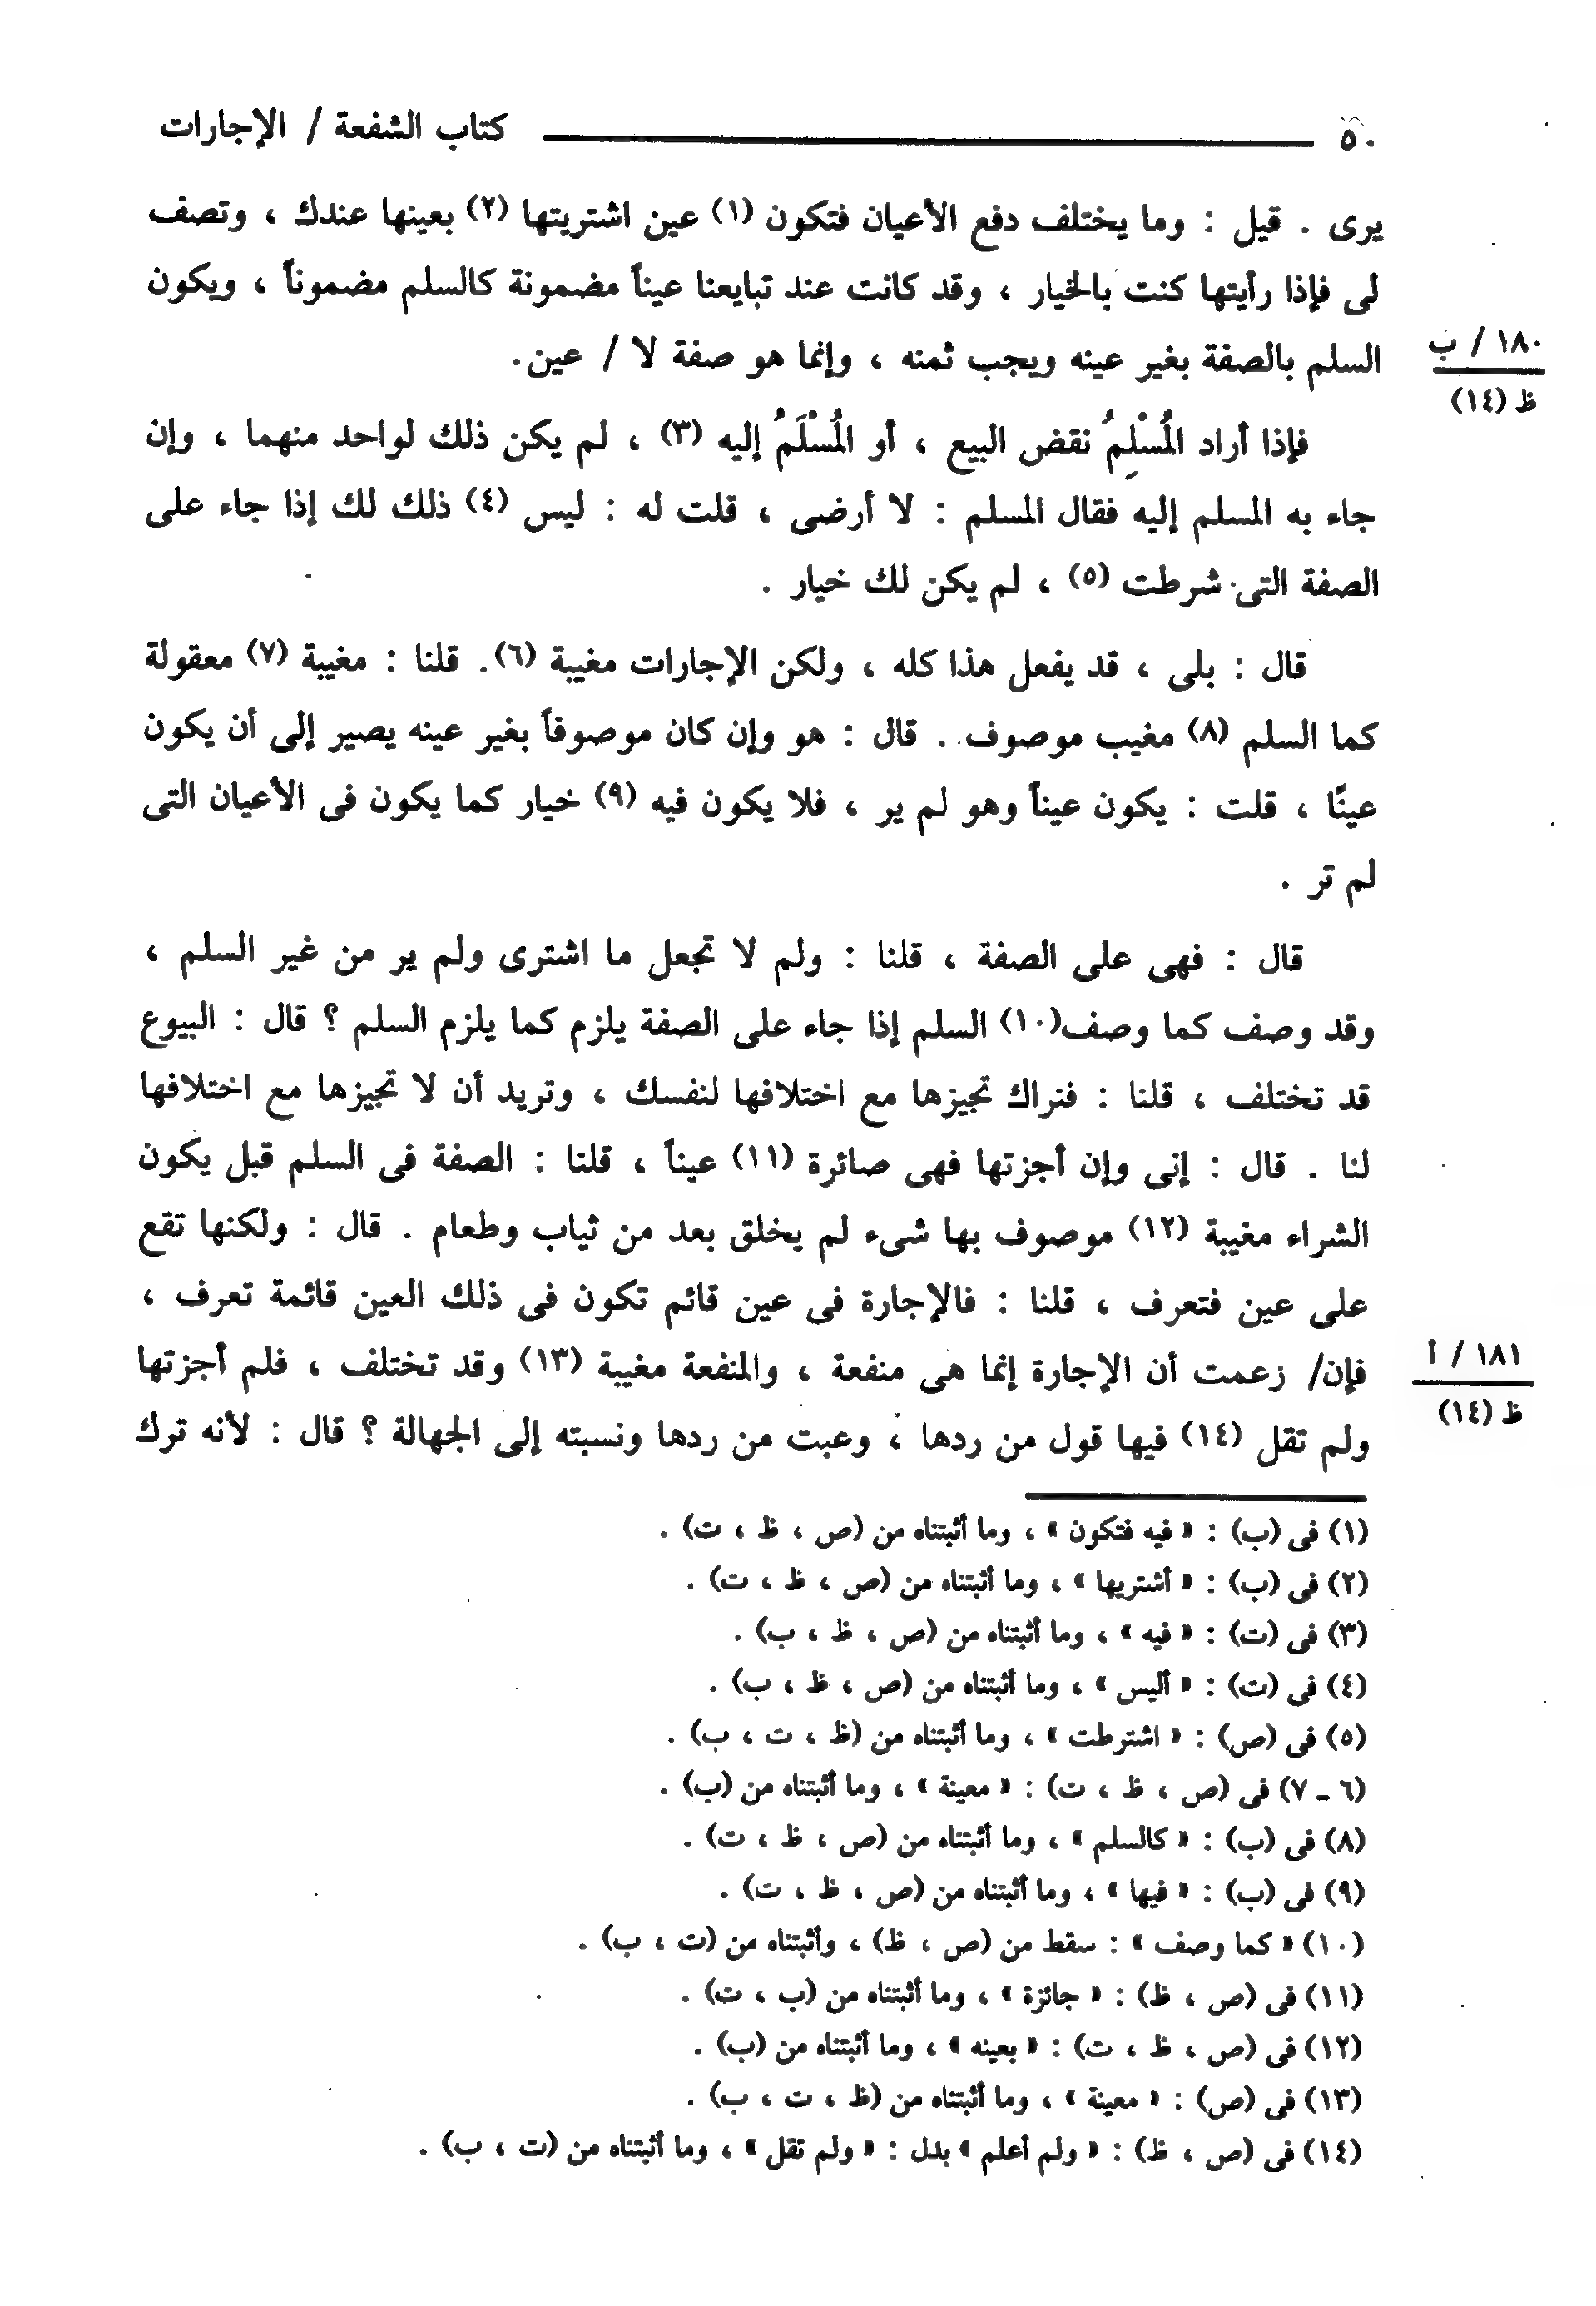 ٥٠ كتاب الشفعة / الإجارات
يرى . قيل : وما يختلف دفع الأعيان فتكون (١) عين اشتريتها (٢) بعينها عندك ، وتصف
لى فإذا رأيتها كنت بالخيار ، وقد كانت عند تبايعنا عيناً مضمونة كالسلم مضموناً ، ويكون
السلم بالصفة بغير عينه ويجب ثمنه ، وإنما هو صفة لا / عين.
١٨٠ / ب
ظ (١٤)
فإذا أراد المُسْلِمُ نقض البيع ، أو المُسْلَمُ إليه (٣) ، لم يكن ذلك لواحد منهما ، وإن
جاء به المسلم إليه فقال المسلم : لا أرضى ، قلت له : ليس (٤) ذلك لك إذا جاء على
الصفة التى شرطت (٥) ، لم يكن لك خيار .
قال : بلى ، قد يفعل هذا كله ، ولكن الإجارات مغيبة (٦). قلنا : مغيبة (٧) معقولة
كما السلم (٨) مغيب موصوف . قال : هو وإن كان موصوفاً بغير عينه يصير إلى أن يكون
عينًا ، قلت : يكون عيناً وهو لم ير ، فلا يكون فيه (٩) خيار كما يكون فى الأعيان التى
لم تر .
قال : فهى على الصفة ، قلنا : ولم لا تجعل ما اشترى ولم ير من غير السلم ،
وقد وصف كما وصف(١٠) السلم إذا جاء على الصفة يلزم كما يلزم السلم ؟ قال : البيوع
قد تختلف ، قلنا : فنراك تجيزها مع اختلافها لنفسك ، وتريد أن لا تجيزها مع اختلافها
لنا . قال : إنى وإن أجزتها فهى صائرة (١١) عيناً ، قلنا : الصفة فى السلم قبل يكون
الشراء مغيبة (١٢) موصوف بها شىء لم يخلق بعد من ثياب وطعام . قال : ولكنها تقع
على عين فتعرف ، قلنا : فالإجارة فى عين قائم تكون فى ذلك العين قائمة تعرف ،
فإن/ زعمت أن الإجارة إنما هى منفعة ، والمنفعة مغيبة (١٣) وقد تختلف ، فلم أجزتها
١٨١ / أ
ظ (١٤)
ولم تقل (١٤) فيها قول من ردها ، وعبت من ردها ونسبته إلى الجهالة ؟ قال : لأنه ترك
(١) فى (ب) : « فيه فتكون » ، وما أثبتناه من (ص ، ظ ، ت) .
(٢) فى (ب) : « أشتريها » ، وما أثبتناه من (ص ، ظ ، ت) .
(٣) فى (ت) : « فيه » ، وما أثبتناه من (ص ، ظ ، ب) .
(٤) فى (ت) : « أليس » ، وما أثبتناه من (ص ، ظ ، ب) .
(٥) فى (ص) : « اشترطت » ، وما أثبتناه من (ظ ، ت ، ب) .
(٦ - ٧) فى (ص ، ظ ، ت) : « معينة » ، وما أثبتناه من (ب) .
(٨) فى (ب) : « كالسلم » ، وما أثبتناه من (ص ، ظ ، ت) .
(٩) فى (ب) : « فيها » ، وما أثبتناه من (ص ، ظ ، ت) .
(١٠) « كما وصف » : سقط من (ص ، ظ) ، وأثبتناه من (ت ، ب) .
(١١) فى (ص ، ظ) : « جائزة » ، وما أثبتناه من (ب ، ت) .
(١٢) فى (ص ، ظ ، ت) : « بعينه » ، وما أثبتناه من (ب) .
(١٣) فى (ص) : « معينة » ، وما أثبتناه من (ظ ، ت ، ب) .
(١٤) فى (ص ، ظ) : « ولم أعلم » بدل : « ولم تقل » ، وما أثبتناه من (ت ، ب) .